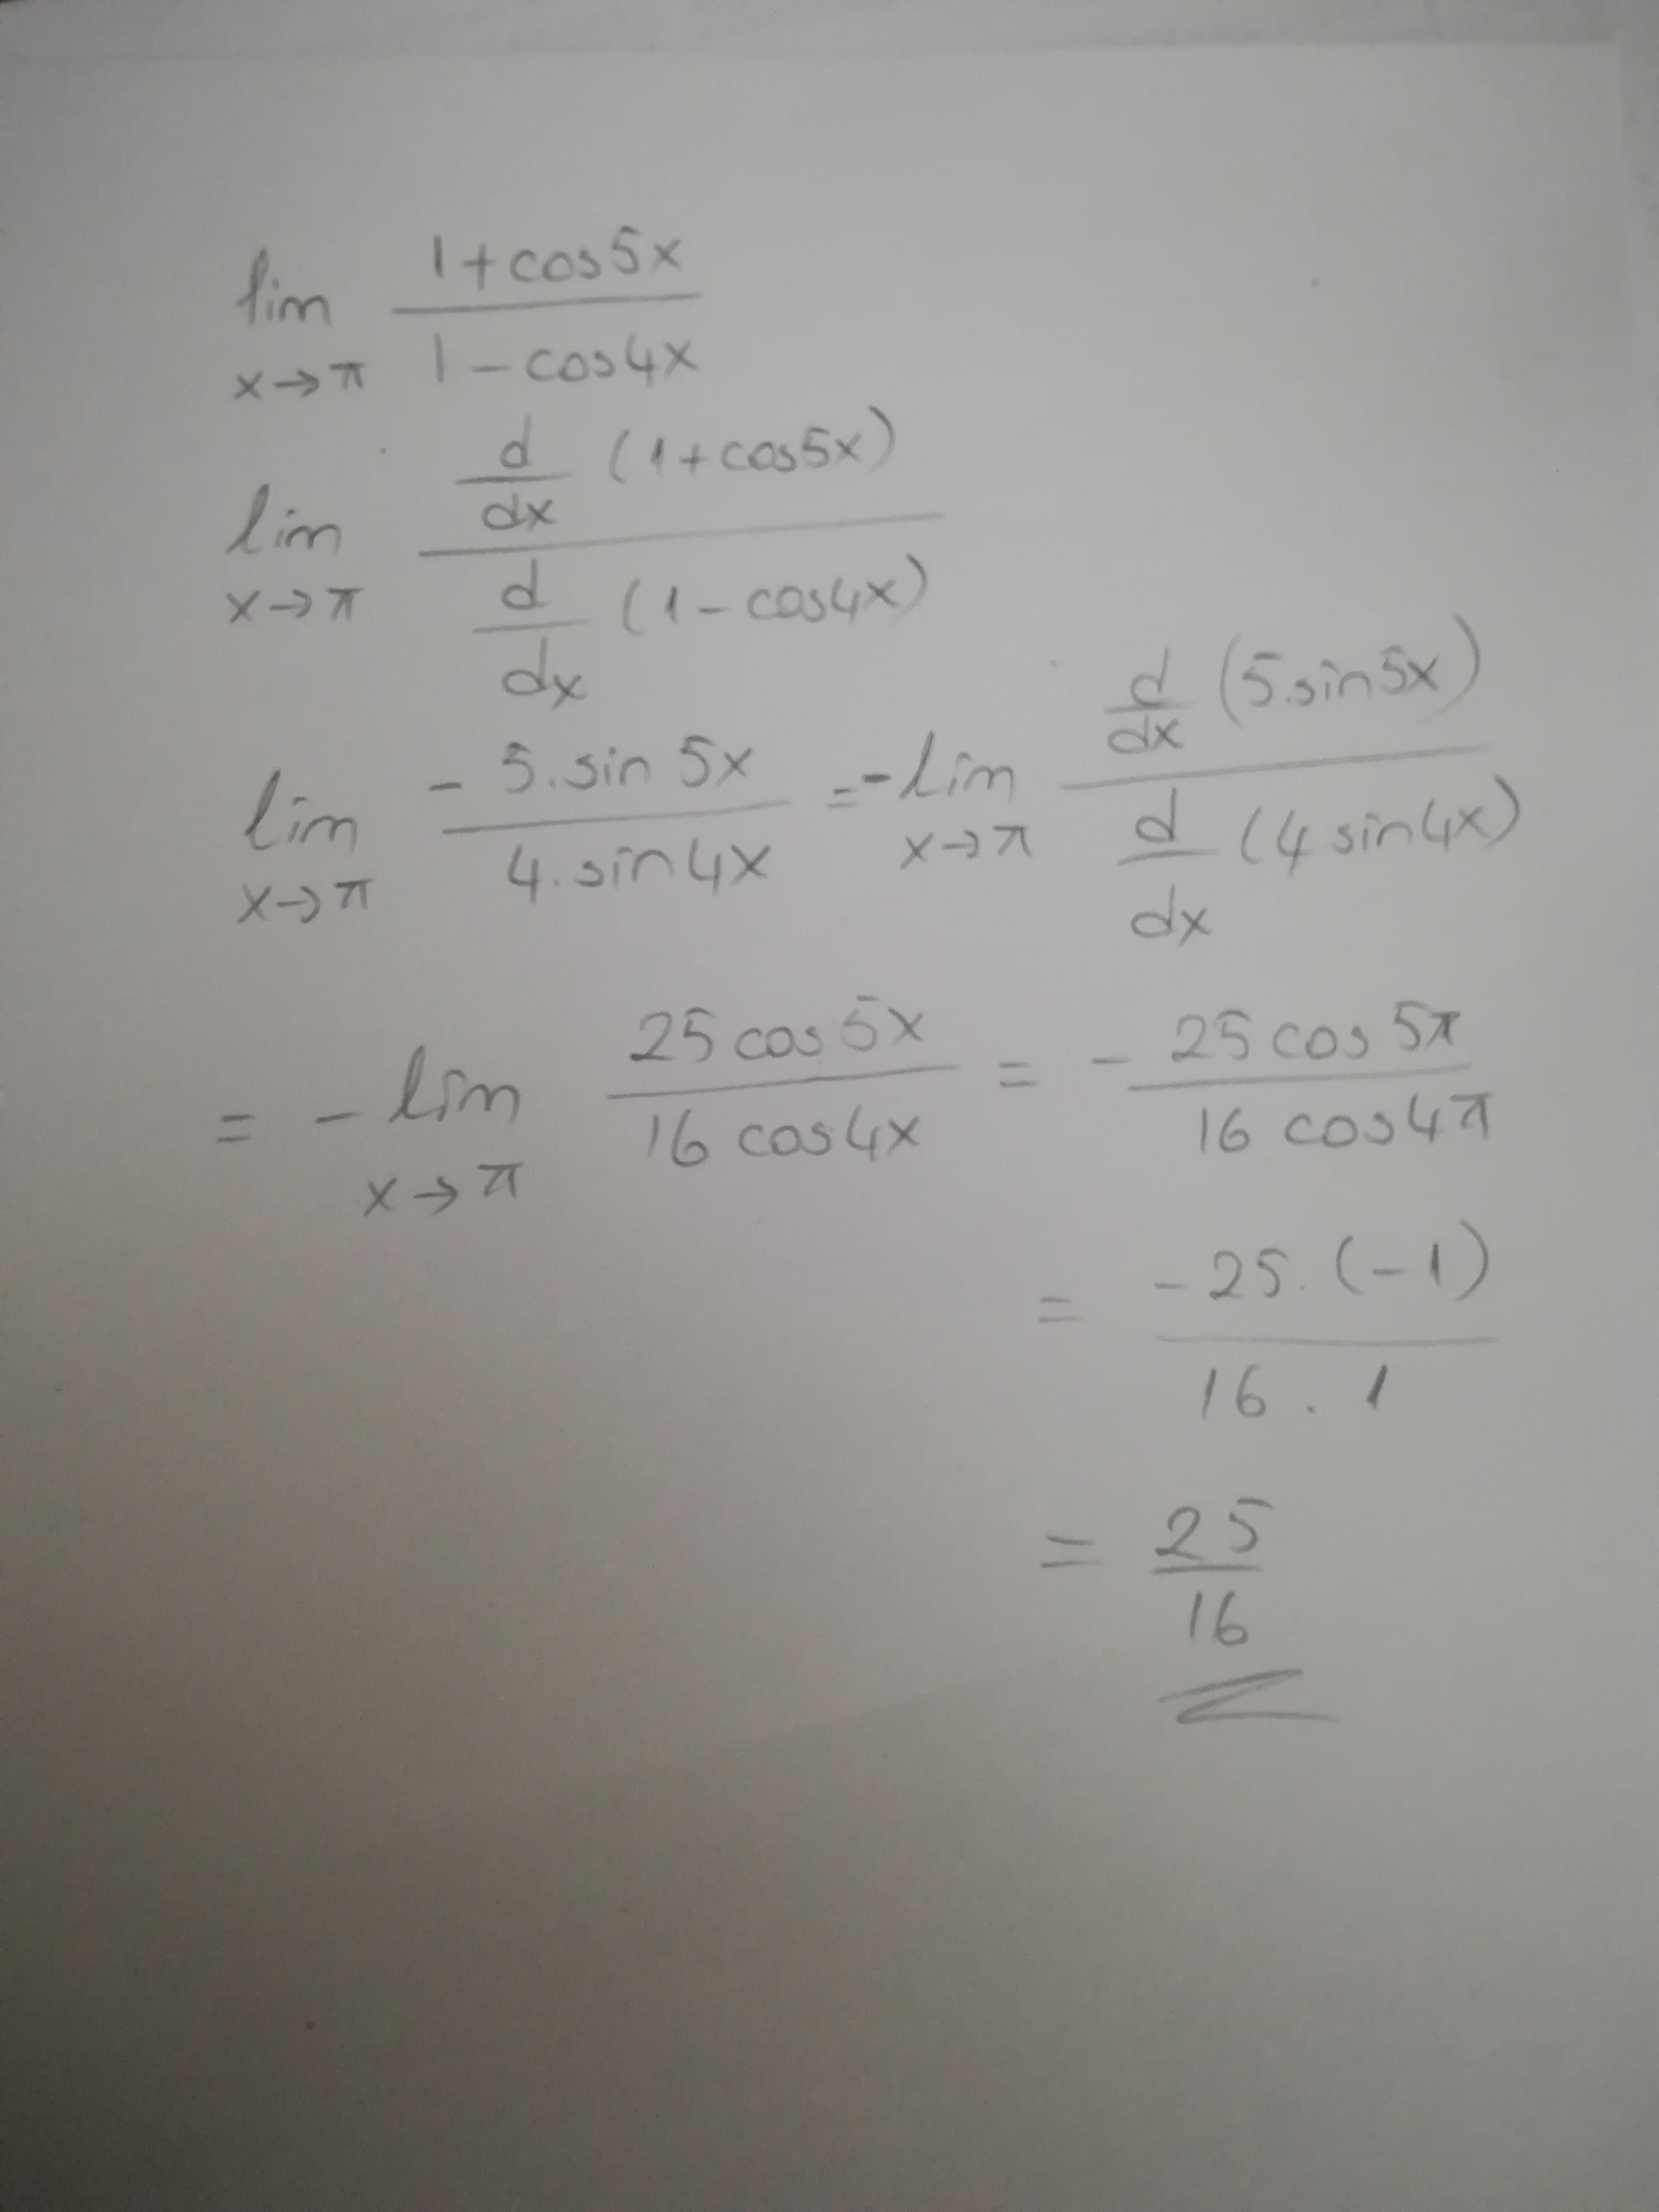 lim x→π (1+cos5x)/(1-cos4x)
lim x→π (d/dx (1+cos5x))/(d/dx (1-cos4x))
lim x→π (-5.sin 5x)/(4.sin4x) = -lim x→π (d/dx (5.sin5x))/(d/dx (4 sin4x))
= -lim x→π (25 cos 5x)/(16 cos4x) = - (25 cos 5π)/(16 cos4π)
= (-25.(-1))/(16.1)
= 25/16